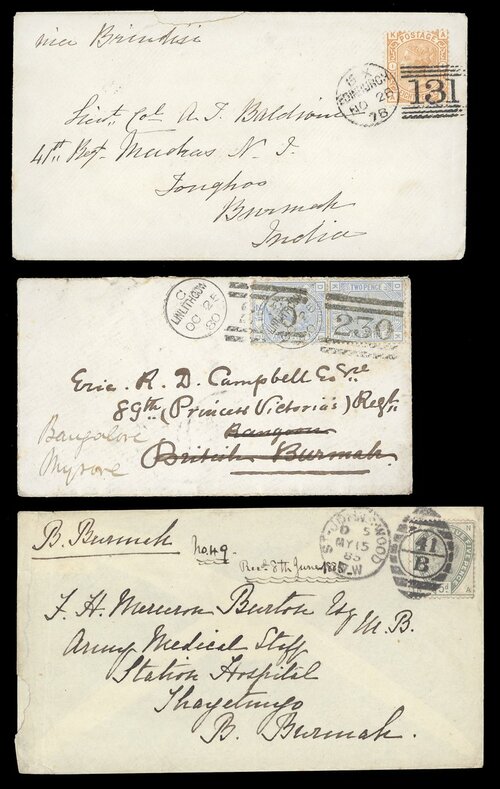 via Brindisi
POSTAGE
EDINBURGH
NO 28
78
131
Lieut. Col. A. T. Baldwin
41st Regt. Madras N. I.
Tonghoo
Burmah
India
C
LINLITHGOW
OC 25
80
TWO PENCE
230
Eric. R. D. Campbell Esqre
89th (Princess Victoria's) Regt.
Rangoon
British Burmah
Bangalore
Mysore
B. Burmah
No. 49.
Recd. 8th June
ST JOHN'S WOOD
D S
MY 15
85
N.W
41
B
F. H. Merceron Burton Esq M.B.
Army Medical Staff
Station Hospital
Thayetmyo
B. Burmah.